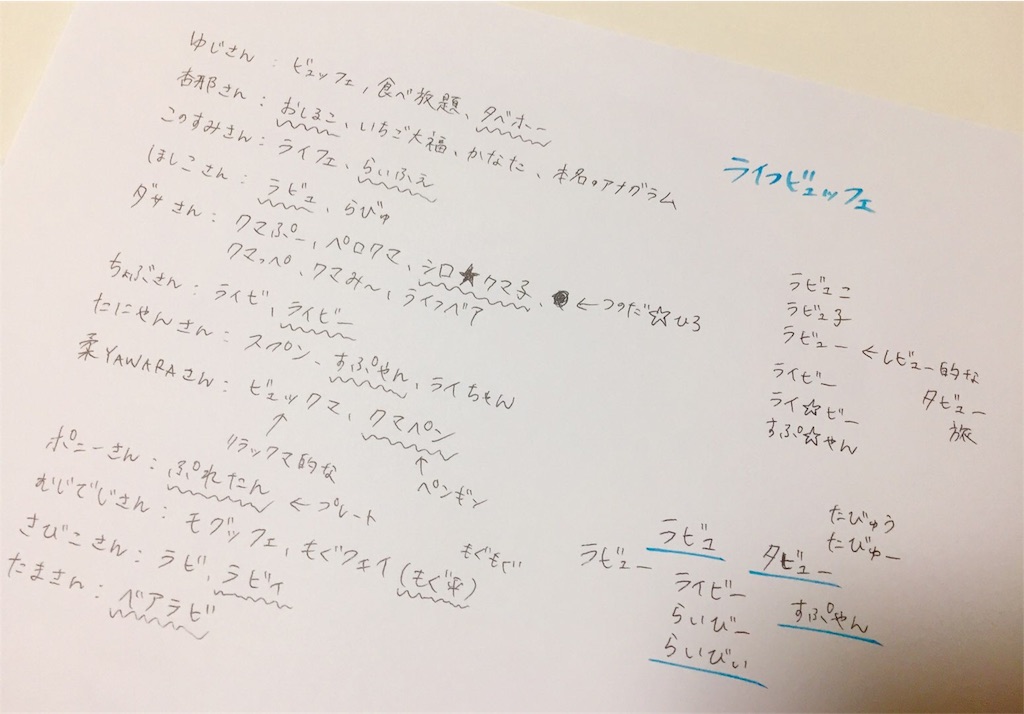 ゆじさん：ビュッフェ,食べ放題、タベホー
杏那さん：おしるこ、いちご大福、かなた、本名のアナグラム
このすみさん：ライフェ、らいふぇ
ほしこさん：ラビュ、らびゅ
ダサさん：クマぷー,ペロクマ、シロ★クマ子、●←つのだ☆ひろ
クマッペ、クマみ〜,ライフベア
ちゃぶさん：ライビ,ライビー
たにやんさん：スプン、すぷやん,ライちゃん
柔YAWARAさん：ビュックマ、クマペン
↑
リラックマ的な
↑
ペンギン
ポニーさん：ぷれたん ←プレート
むじでじさん：モグッフェ,もぐフェイ(もぐ平) もぐもぐ
さびこさん：ラビ,ラビィ
たまさん：ベアラビ
ライフビュッフェ
ラビュこ
ラビュ子
ラビュー ←レビュー的な
ライビー
ライ☆ビー
すぷ☆やん
タビュー
旅
たびゅう
たびゅー
ラビュー ラビュ タビュー
ライビー
らいびー
らいびぃ
すぷやん